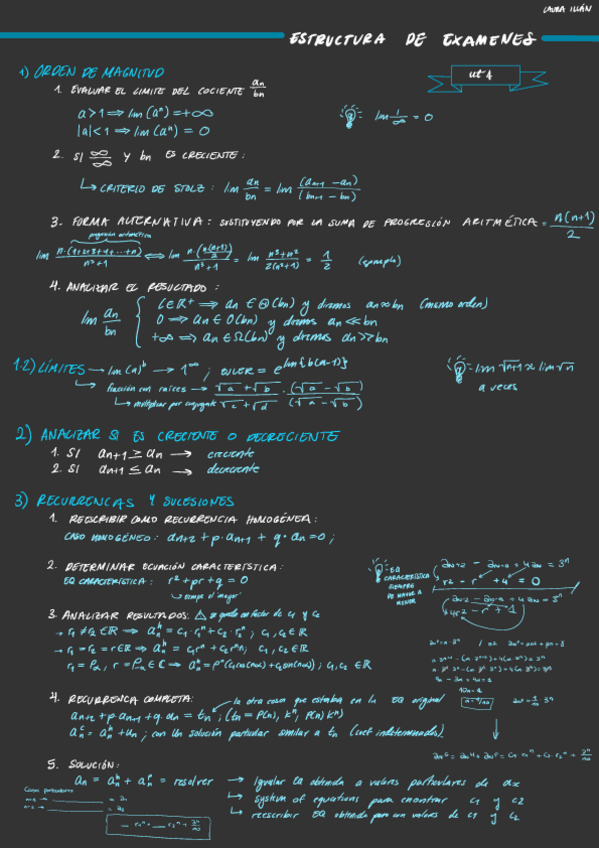 LAURA ILLÁN
ESTRUCTURA DE EXAMENES
ut 4
1) ORDEN DE MAGNITUD
1. EVALUAR EL LIMITE DEL COCIENTE an/bn
a>1 ⟹ lim(aⁿ)=+∞
|a|<1 ⟹ lim(aⁿ) = 0
lim 1/∞ = 0
2. SI ∞/∞ Y bn ES CRECIENTE:
↳ CRITERIO DE STOLZ: lim an/bn = lim (an+1 - an)/(bn+1 - bn)
3. FORMA ALTERNATIVA: SUSTITUYENDO POR LA SUMA DE PROGRESIÓN ARITMÉTICA = n(n+1)/2
progresión aritmética
lim n·(1+2+3+4+...+n)/n³+1 ⟺ lim n·(n(n+1)/2)/n³+1 = lim n³+n²/2(n³+1) = 1/2 (ejemplo)
4. ANALIZAR EL RESULTADO:
lim an/bn {
L∈ℝ⁺ ⟹ an ∈ Θ(bn) y diremos an∝bn (mismo orden)
0 ⟹ an ∈ O(bn) y diremos an<<bn
+∞ ⟹ an ∈ Ω(bn) y diremos an>>bn
1.2) LÍMITES → lim(a)ᵇ → 1^∞ ; EULER = e^lim{b(a-1)}
↳ fracción con raíces → √a + √b / √c + √d · (√a - √b)/(√a - √b)
↳ multiplicar por conjugado
lim √n+1 ∝ lim √n
a veces
2) ANALIZAR SI ES CRECIENTE O DECRECIENTE
1. SI an+1 ≥ an → creciente
2. SI an+1 ≤ an → decreciente
3) RECURRENCIAS Y SUCESIONES
1. REESCRIBIR COMO RECURRENCIA HOMOGÉNEA:
CASO HOMOGÉNEO: an+2 + p·an+1 + q·an = 0;
2. DETERMINAR ECUACIÓN CARACTERÍSTICA:
EQ CARACTERÍSTICA: r² + pr + q = 0
EQ CARACTERÍSTICA SIEMPRE DE MAYOR A MENOR
r² - r + 4 = 0
3. ANALIZAR RESULTADOS:
→ r1 ≠ r2 ∈ ℝ ⟹ anʰ = c1·r1ⁿ + c2·r2ⁿ ; c1, c2 ∈ ℝ
→ r1 = r2 = r ∈ ℝ ⟹ anʰ = c1rⁿ + c2rⁿn; c1, c2 ∈ ℝ
4. RECURRENCIA COMPLETA:
la otra cosa que estaba en la EQ original
an+2 + p an+1 + q·an = tn ; (tn = P(n), kⁿ, P(n)kⁿ)
con un solución particular similar a tn (coef indeterminados).
5. SOLUCIÓN:
an = anʰ + anᵖ = resolver → igualar la obtenida a valores particulares de
↳ system of equations para encontrar c1 y c2
↳ reescribir EQ obtenida pero con valores de c1 y c2
Casos particulares